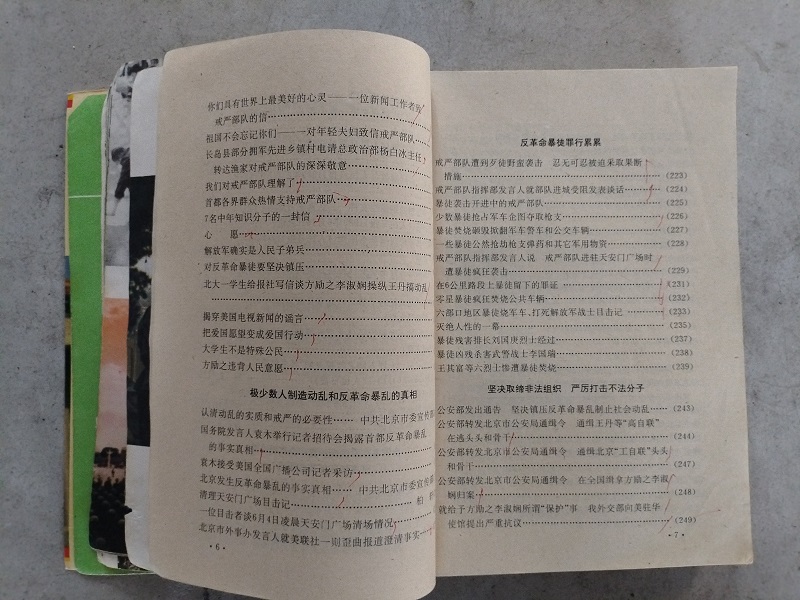 你们具有世界上最美好的心灵——一位新闻工作者致
戒严部队的信
祖国不会忘记你们——一对年轻夫妇致信戒严部队
长岛县部分拥军先进乡镇村电请总政治部杨白冰主任
转达渔家对戒严部队的深深敬意
我们对戒严部队理解了
首都各界群众热情支持戒严部队
7名中年知识分子的一封信
心 愿
解放军确实是人民子弟兵
对反革命暴徒要坚决镇压
北大一学生给报社写信谈方励之李淑娴操纵王丹搞动乱
揭穿美国电视新闻的谣言
把爱国愿望变成爱国行动
大学生不是特殊公民
方励之违背人民意愿
极少数人制造动乱和反革命暴乱的真相
认清动乱的实质和戒严的必要性……中共北京市委宣传部
国务院发言人袁木举行记者招待会揭露首都反革命暴乱
的事实真相
袁木接受美国全国广播公司记者采访
北京发生反革命暴乱的事实真相……中共北京市委宣传
清理天安门广场目击记……柏
一位目击者谈6月4日凌晨天安门广场清场情况
北京市外事办发言人就美联社一则歪曲报道澄清事实
·6·
反革命暴徒罪行累累
戒严部队遭到歹徒野蛮袭击 忍无可忍被迫采取果断
措施……(223)
戒严部队指挥部发言人就部队进城受阻发表谈话……(224)
暴徒袭击开进中的戒严部队……(225)
少数暴徒抢占军车企图夺取枪支……(226)
暴徒焚烧砸毁掀翻军车警车和公交车辆……(227)
一些暴徒公然抢劫枪支弹药和其它军用物资……(228)
戒严部队指挥部发言人说 戒严部队进驻天安门广场时
遭暴徒疯狂袭击……(229)
在6公里路段上暴徒留下的罪证……(231)
零星暴徒疯狂焚烧公共车辆……(232)
六部口地区暴徒烧军车、打死解放军战士目击记……(233)
灭绝人性的一幕……(235)
暴徒残害排长刘国庚烈士经过……(237)
暴徒凶残杀害武警战士李国瑞……(238)
王其富等六烈士惨遭暴徒焚烧……(239)
坚决取缔非法组织 严厉打击不法分子
公安部发出通告 坚决镇压反革命暴乱制止社会动乱……(243)
公安部转发北京市公安局通缉令 通缉王丹等“高自联”
在逃头头和骨干……(244)
公安部转发北京市公安局通缉令 通缉北京“工自联”头头
和骨干……(247)
公安部转发北京市公安局通缉令 在全国缉拿方励之李淑
娴归案……(248)
就给于方励之李淑娴所谓“保护”事 我外交部向美驻华
使馆提出严重抗议……(249)
·7·